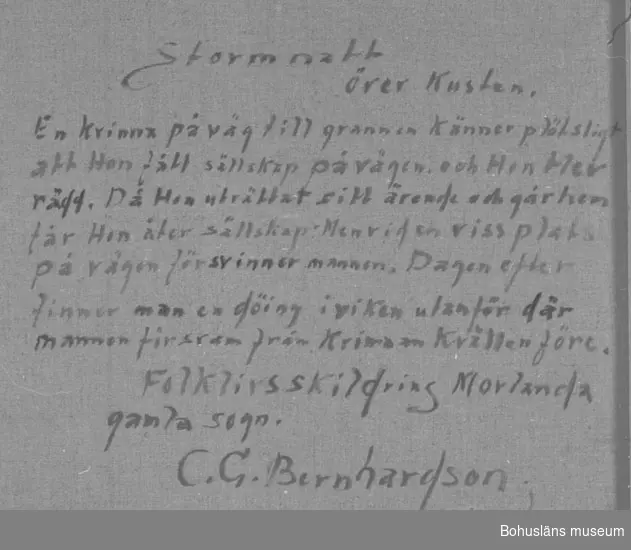 Stormnatt
över Kusten.
En kvinna på väg till grannen känner plötsligt
att Hon fått sällskap på vägen. och Hon blev
rädd. Då Hon uträttat sitt ärende och går hem
får Hon åter sällskap. Men vid en viss plats
på vägen försvinner mannen. Dagen efter
finner man en döing i viken utanför där
mannen försvann från Kvinnan Kvällen före.
Folklivsskildring Morlanda
gamla sogn.
C.G. Bernhardson.
Bohusläns museum